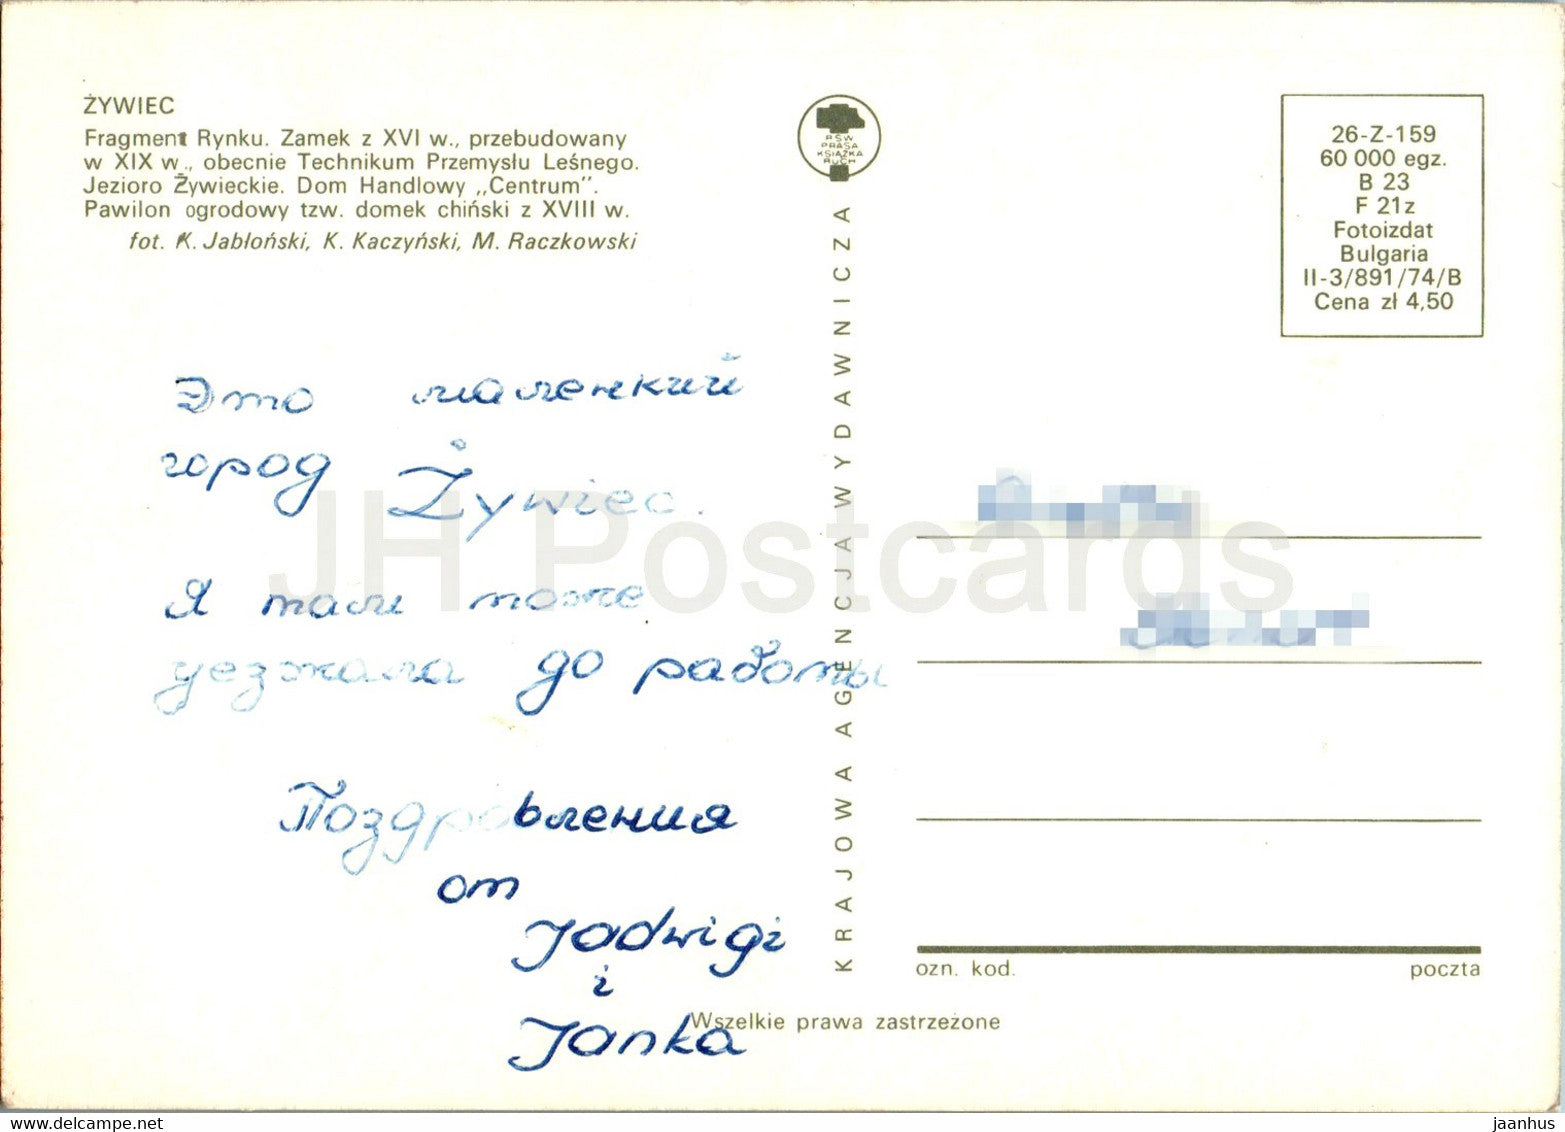 ŻYWIEC
Fragment Rynku. Zamek z XVI w., przebudowany
w XIX w., obecnie Technikum Przemysłu Leśnego.
Jezioro Żywieckie. Dom Handlowy „Centrum".
Pawilon ogrodowy tzw. domek chiński z XVIII w.
fot. K. Jabłoński, K. Kaczyński, M. Raczkowski
RSW
PRASA
KSIĄŻKA
RUCH
26-Z-159
60 000 egz.
B 23
F 21z
Fotoizdat
Bulgaria
II-3/891/74/B
Cena zł 4,50
KRAJOWA AGENCJA WYDAWNICZA
Это маленкий
город Żywiec.
Я тали може
уезжала до работы
Поздровления
от
Jadwigi
i
Janka
ozn. kod.
poczta
Wszelkie prawa zastrzeżone
JH Postcards
www.delcampe.net
jaanhus